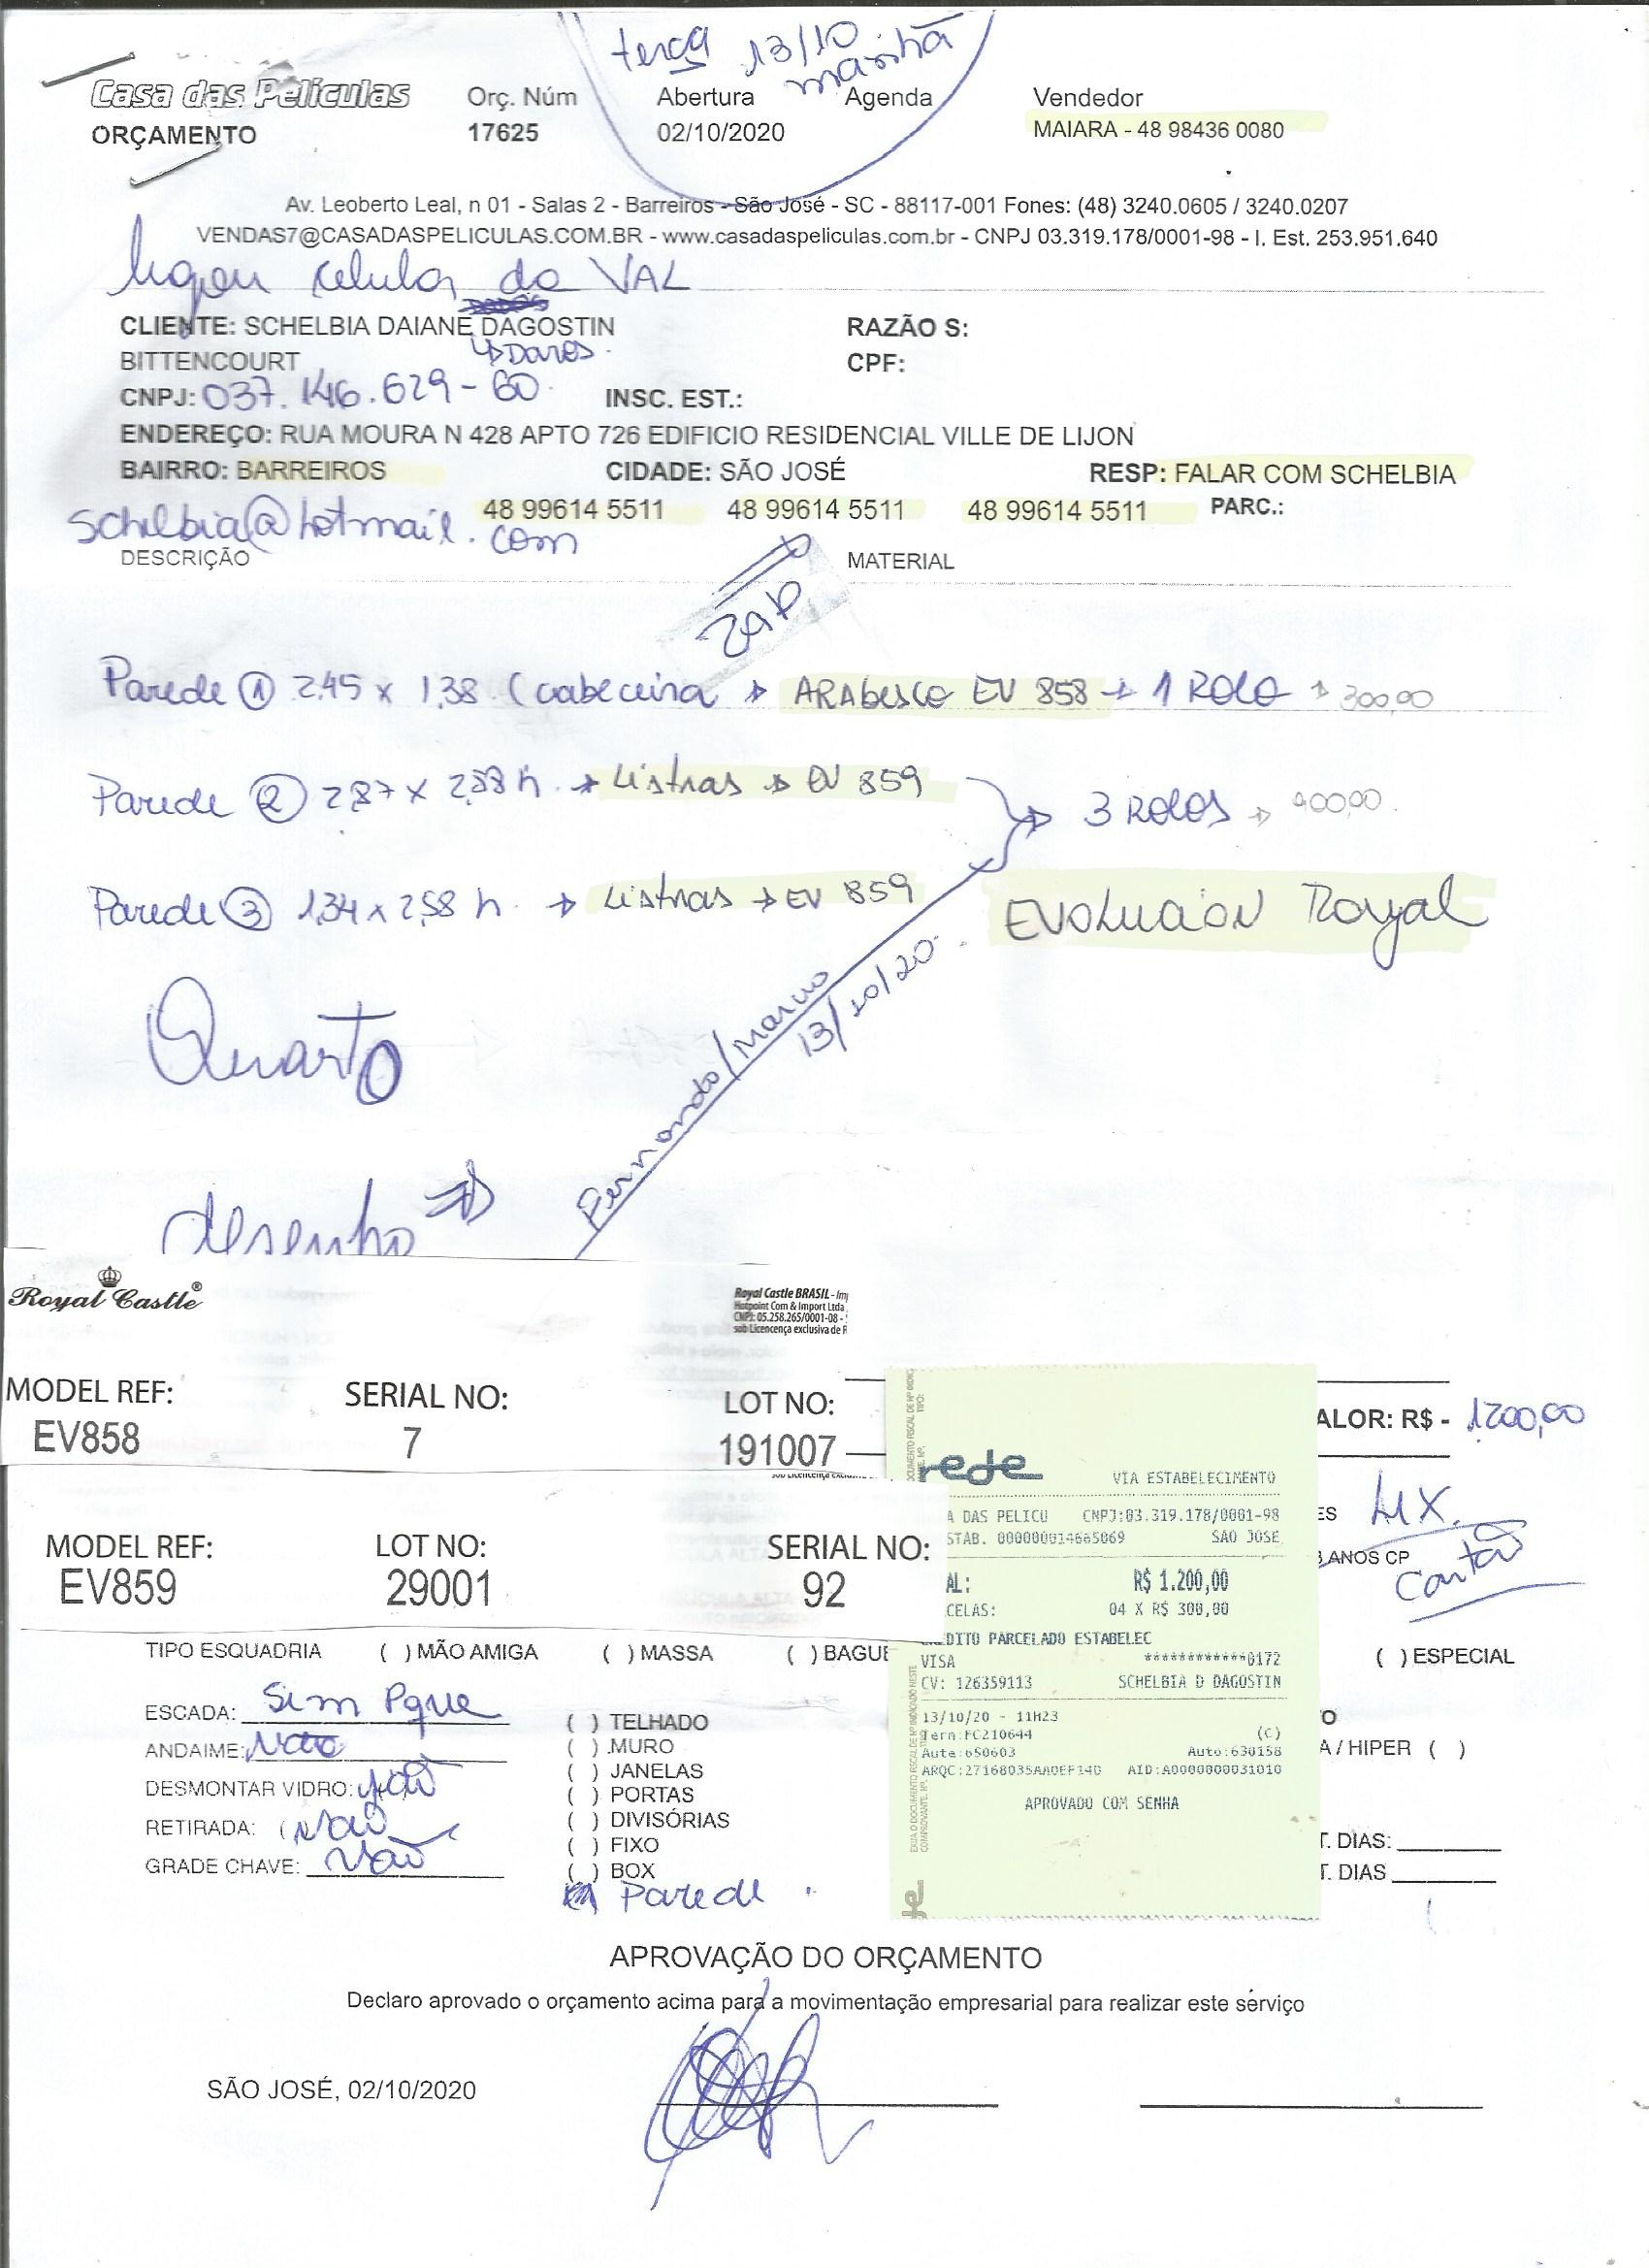 terça 13/10
manhã
Casa das Películas Orç. Núm Abertura Agenda Vendedor
ORÇAMENTO 17625 02/10/2020 MAIARA - 48 98436 0080
Av. Leoberto Leal, n 01 - Salas 2 - Barreiros - São José - SC - 88117-001 Fones: (48) 3240.0605 / 3240.0207
VENDAS7@CASADASPELICULAS.COM.BR - www.casadaspeliculas.com.br - CNPJ 03.319.178/0001-98 - I. Est. 253.951.640
ligou celular do VAL
CLIENTE: SCHELBIA DAIANE DAGOSTIN RAZÃO S:
BITTENCOURT CPF:
CNPJ: 037.146.629-60 INSC. EST.:
ENDEREÇO: RUA MOURA N 428 APTO 726 EDIFICIO RESIDENCIAL VILLE DE LIJON
BAIRRO: BARREIROS CIDADE: SÃO JOSÉ RESP: FALAR COM SCHELBIA
48 99614 5511 48 99614 5511 48 99614 5511 PARC.:
schelbia@hotmail.com
DESCRIÇÃO MATERIAL
Parede 1 2,45 x 1,38 (cabeceira → ARAbesco EV 858 → 1 ROLO → 300,00
Parede 2 2,87 x 2,58 h. → Listras → EV 859
3 ROLOS → 900,00
Parede 3 1,34 x 2,58 h → Listras → EV 859 EVOLUCION Royal
Fernando/Marcio
13/10/20
Quarto
desenho
Royal Castle®
Royal Castle BRASIL - Im
Hotpoint Com & Import Ltda
CNPJ: 05.258.265/0001-08 -
sub Licencença exclusiva de F
MODEL REF: SERIAL NO: LOT NO:
EV858 7 191007
ALOR: R$ - 1.200,00
MODEL REF: LOT NO: SERIAL NO:
EV859 29001 92
rede VIA ESTABELECIMENTO
A DAS PELICU CNPJ:03.319.178/0001-98
STAB. 000000014665069 SAO JOSE
AL: R$ 1.200,00
CELAS: 04 X R$ 300,00
CREDITO PARCELADO ESTABELEC
VISA ************0172
CV: 126359113 SCHELBIA D DAGOSTIN
13/10/20 - 11H23
Term:FC210644 (C)
Aute:650603 Auto:630158
ARQC:27168035AA0EF14D AID:A0000000031010
APROVADO COM SENHA
ES 4X.
3 ANOS CP
Cartão
TIPO ESQUADRIA ( ) MÃO AMIGA ( ) MASSA ( ) BAGUE ( ) ESPECIAL
ESCADA: Sim Pque
ANDAIME: Não
DESMONTAR VIDRO: Não
RETIRADA: ( Não
GRADE CHAVE: Não
( ) TELHADO
( ) MURO
( ) JANELAS
( ) PORTAS
( ) DIVISÓRIAS
( ) FIXO
( ) BOX
Parede
O
A / HIPER ( )
T. DIAS:
T. DIAS
APROVAÇÃO DO ORÇAMENTO
Declaro aprovado o orçamento acima para a movimentação empresarial para realizar este serviço
SÃO JOSÉ, 02/10/2020